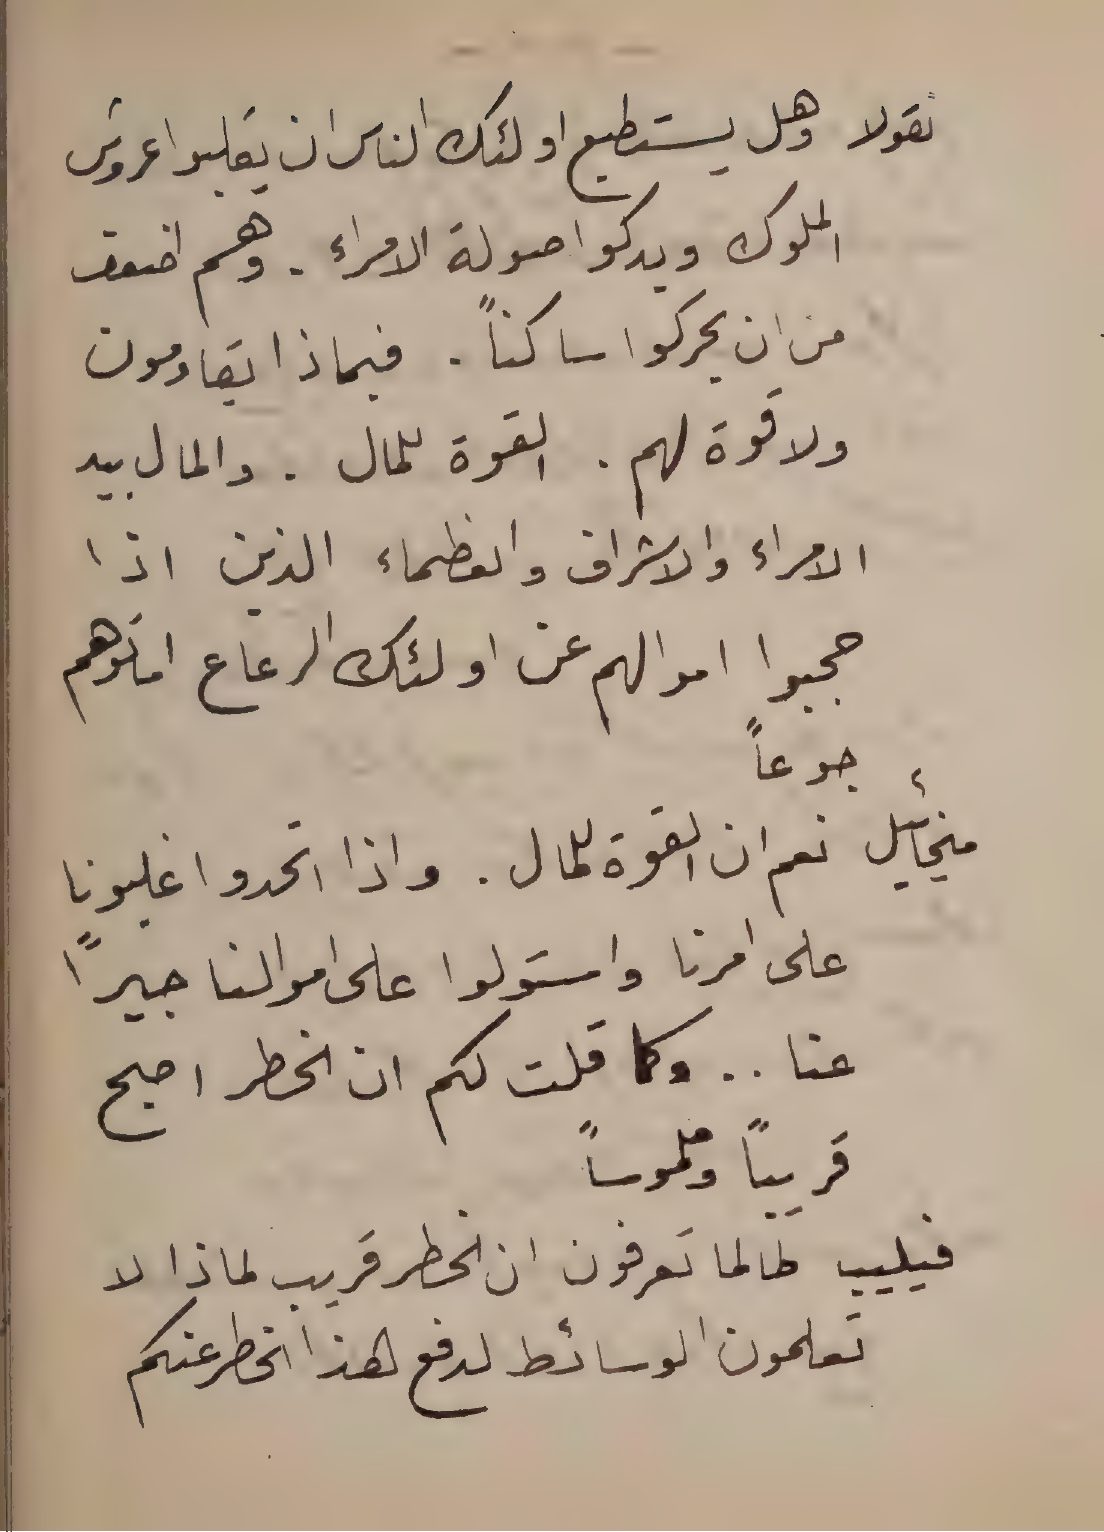 نقولا وهل يستطيع اولئك الناس ان يقلبوا عروش
الملوك ويدكوا صولة الامراء . وهم اضعف
من ان يحركوا ساكناً . فبماذا يقاومون
ولا قوة لهم . القوة للمال . والمال بيد
الامراء والاشراف والعظماء الذين اذا
حجبوا اموالهم عن اولئك الرعاع اماتوهم
جوعاً
ميخائيل نعم ان القوة للمال . واذا اتحدوا غلبونا
على امرنا واستولوا على اموالنا جبراً
عنا .. وكما قلت لكم ان الخطر اصبح
قريباً وملموساً
فيليب طالما تعرفون ان الخطر قريب لماذا لا
تعلمون الوسائط لدفع هذا الخطر عنكم